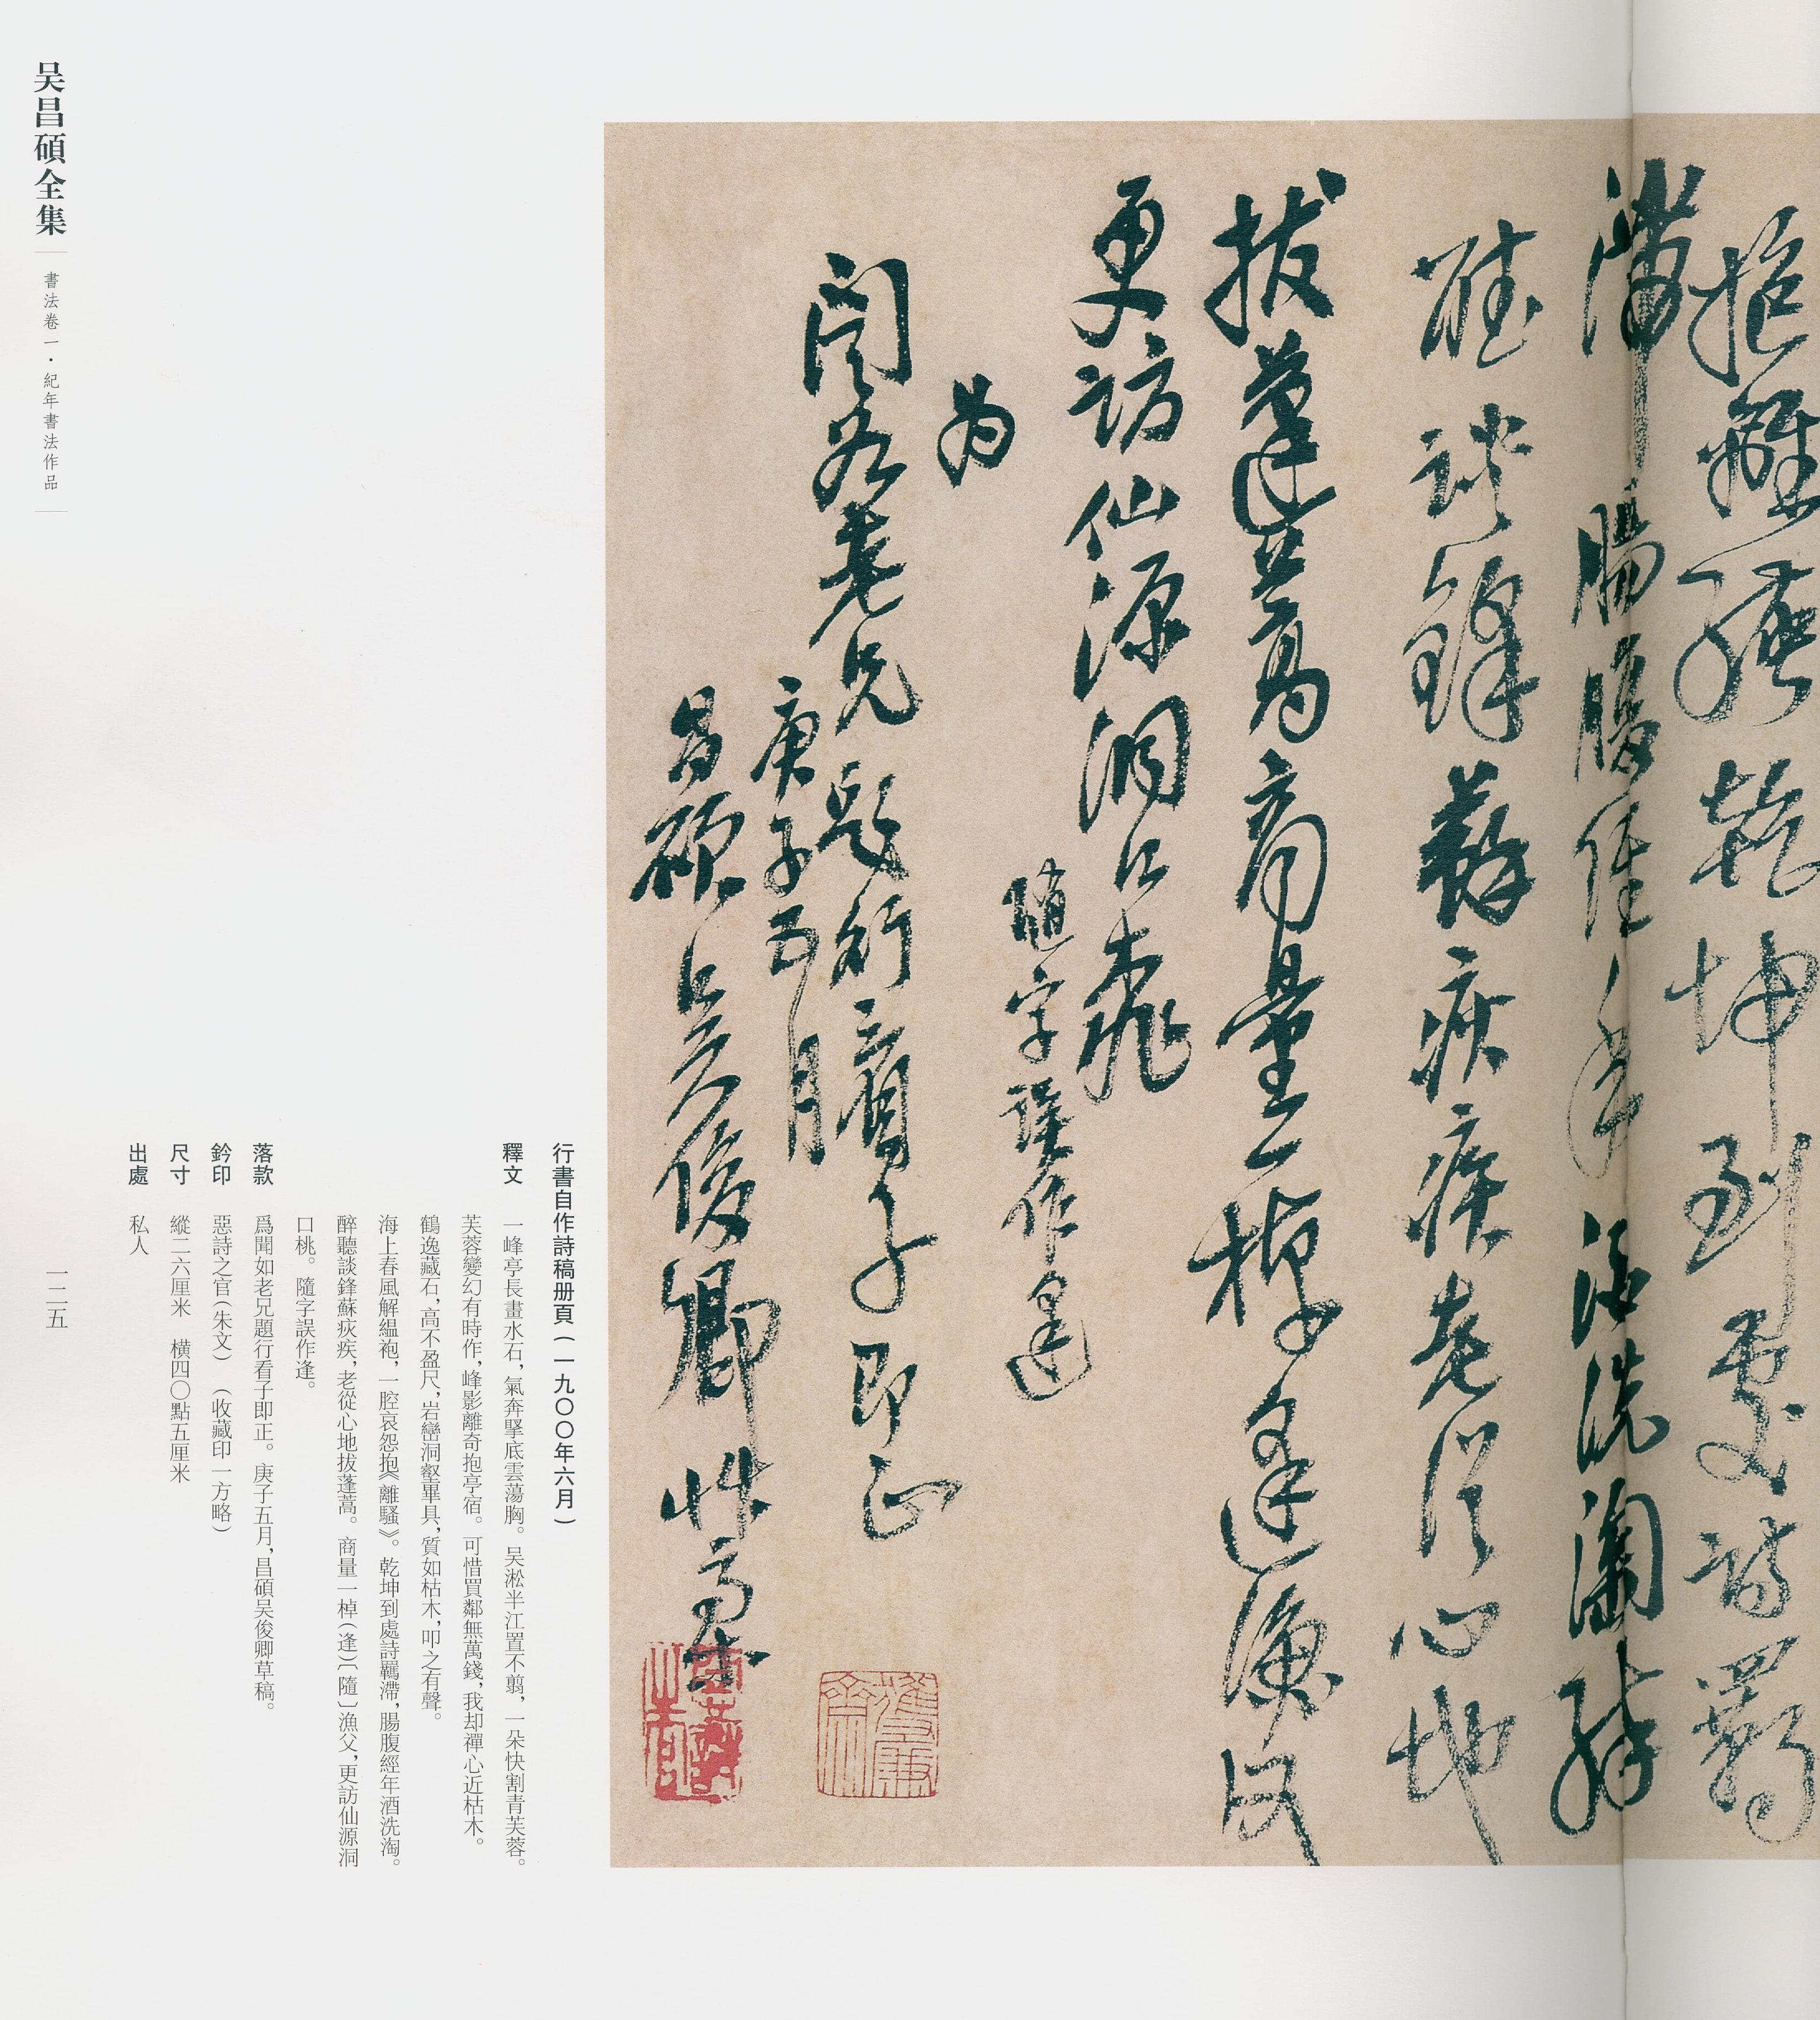 抱離騷乾坤到處詩羈
滯腸腹經年酒洗淘醉
聽談鋒蘇疢疾老從心地
拔蓬蒿商量一棹逢漁父
更訪仙源洞口桃
隨字誤作逢
为
聞如老兄題行看子即正
庚子五月
昌碩吳俊卿草稿
惡詩之官
行書自作詩稿册頁（一九〇〇年六月）
釋文 一峰亭長畫水石，氣奔擊底雲蕩胸。吴淞半江置不翦，一朵快割青芙蓉。
芙蓉變幻有時作，峰影離奇抱亭宿。可惜買鄰無萬錢，我却禪心近枯木。
鶴逸藏石，高不盈尺，岩巒洞壑畢具，質如枯木，叩之有聲。
海上春風解緼袍，一腔哀怨抱《離騷》。乾坤到處詩羈滯，腸腹經年酒洗淘。
醉聽談鋒蘇疢疾，老從心地拔蓬蒿。商量一棹（逢）〔隨〕漁父，更訪仙源洞
口桃。隨字誤作逢。
落款 爲聞如老兄題行看子即正。庚子五月，昌碩吴俊卿草稿。
鈐印 惡詩之官（朱文）（收藏印一方略）
尺寸 縱二六厘米 横四〇點五厘米
出處 私人
吴昌碩全集
書法卷一·紀年書法作品
一二五